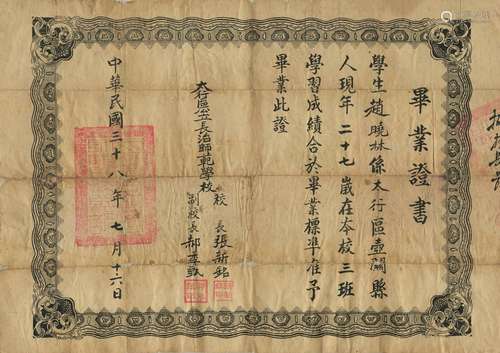 畢業證書
學生趙曉林係太行區壺關縣
人現年二十七歲在本校三班
學習成績合於畢業標準准予
畢業此證
太行區公立長治師範學校
校長張新銘
副校長郝
中華民國三十八年七月十六日